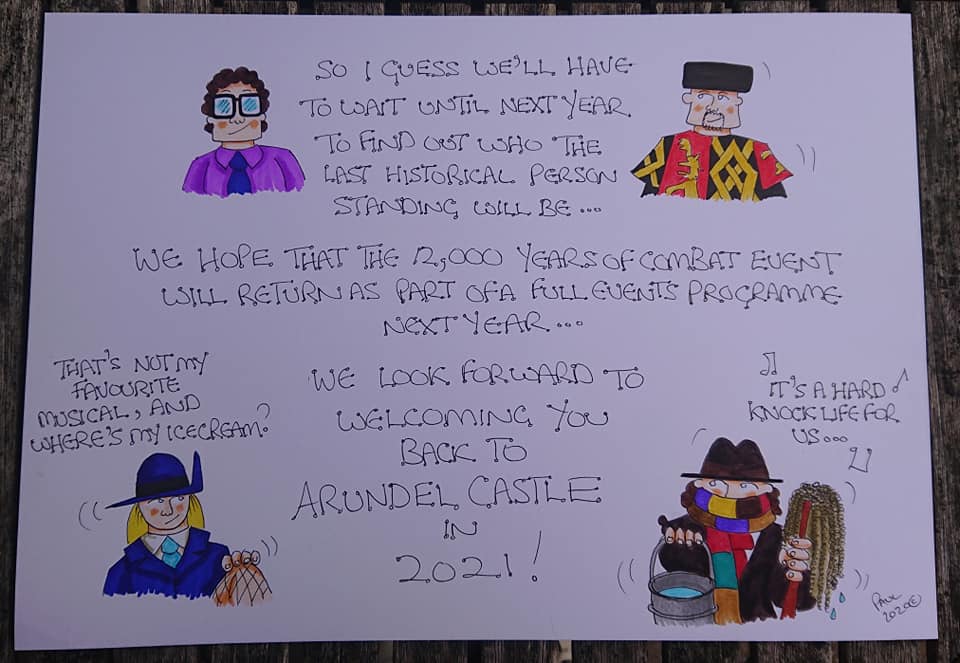 SO I GUESS WE'LL HAVE
TO WAIT UNTIL NEXT YEAR
TO FIND OUT WHO THE
LAST HISTORICAL PERSON
STANDING WILL BE...
WE HOPE THAT THE 12,000 YEARS OF COMBAT EVENT
WILL RETURN AS PART OF A FULL EVENTS PROGRAMME
NEXT YEAR...
THAT'S NOT MY
FAVOURITE
MUSICAL, AND
WHERE'S MY ICECREAM?
WE LOOK FORWARD TO
WELCOMING YOU
BACK TO
ARUNDEL CASTLE
IN
2021!
IT'S A HARD
KNOCK LIFE FOR
US...
PAUL
2020©